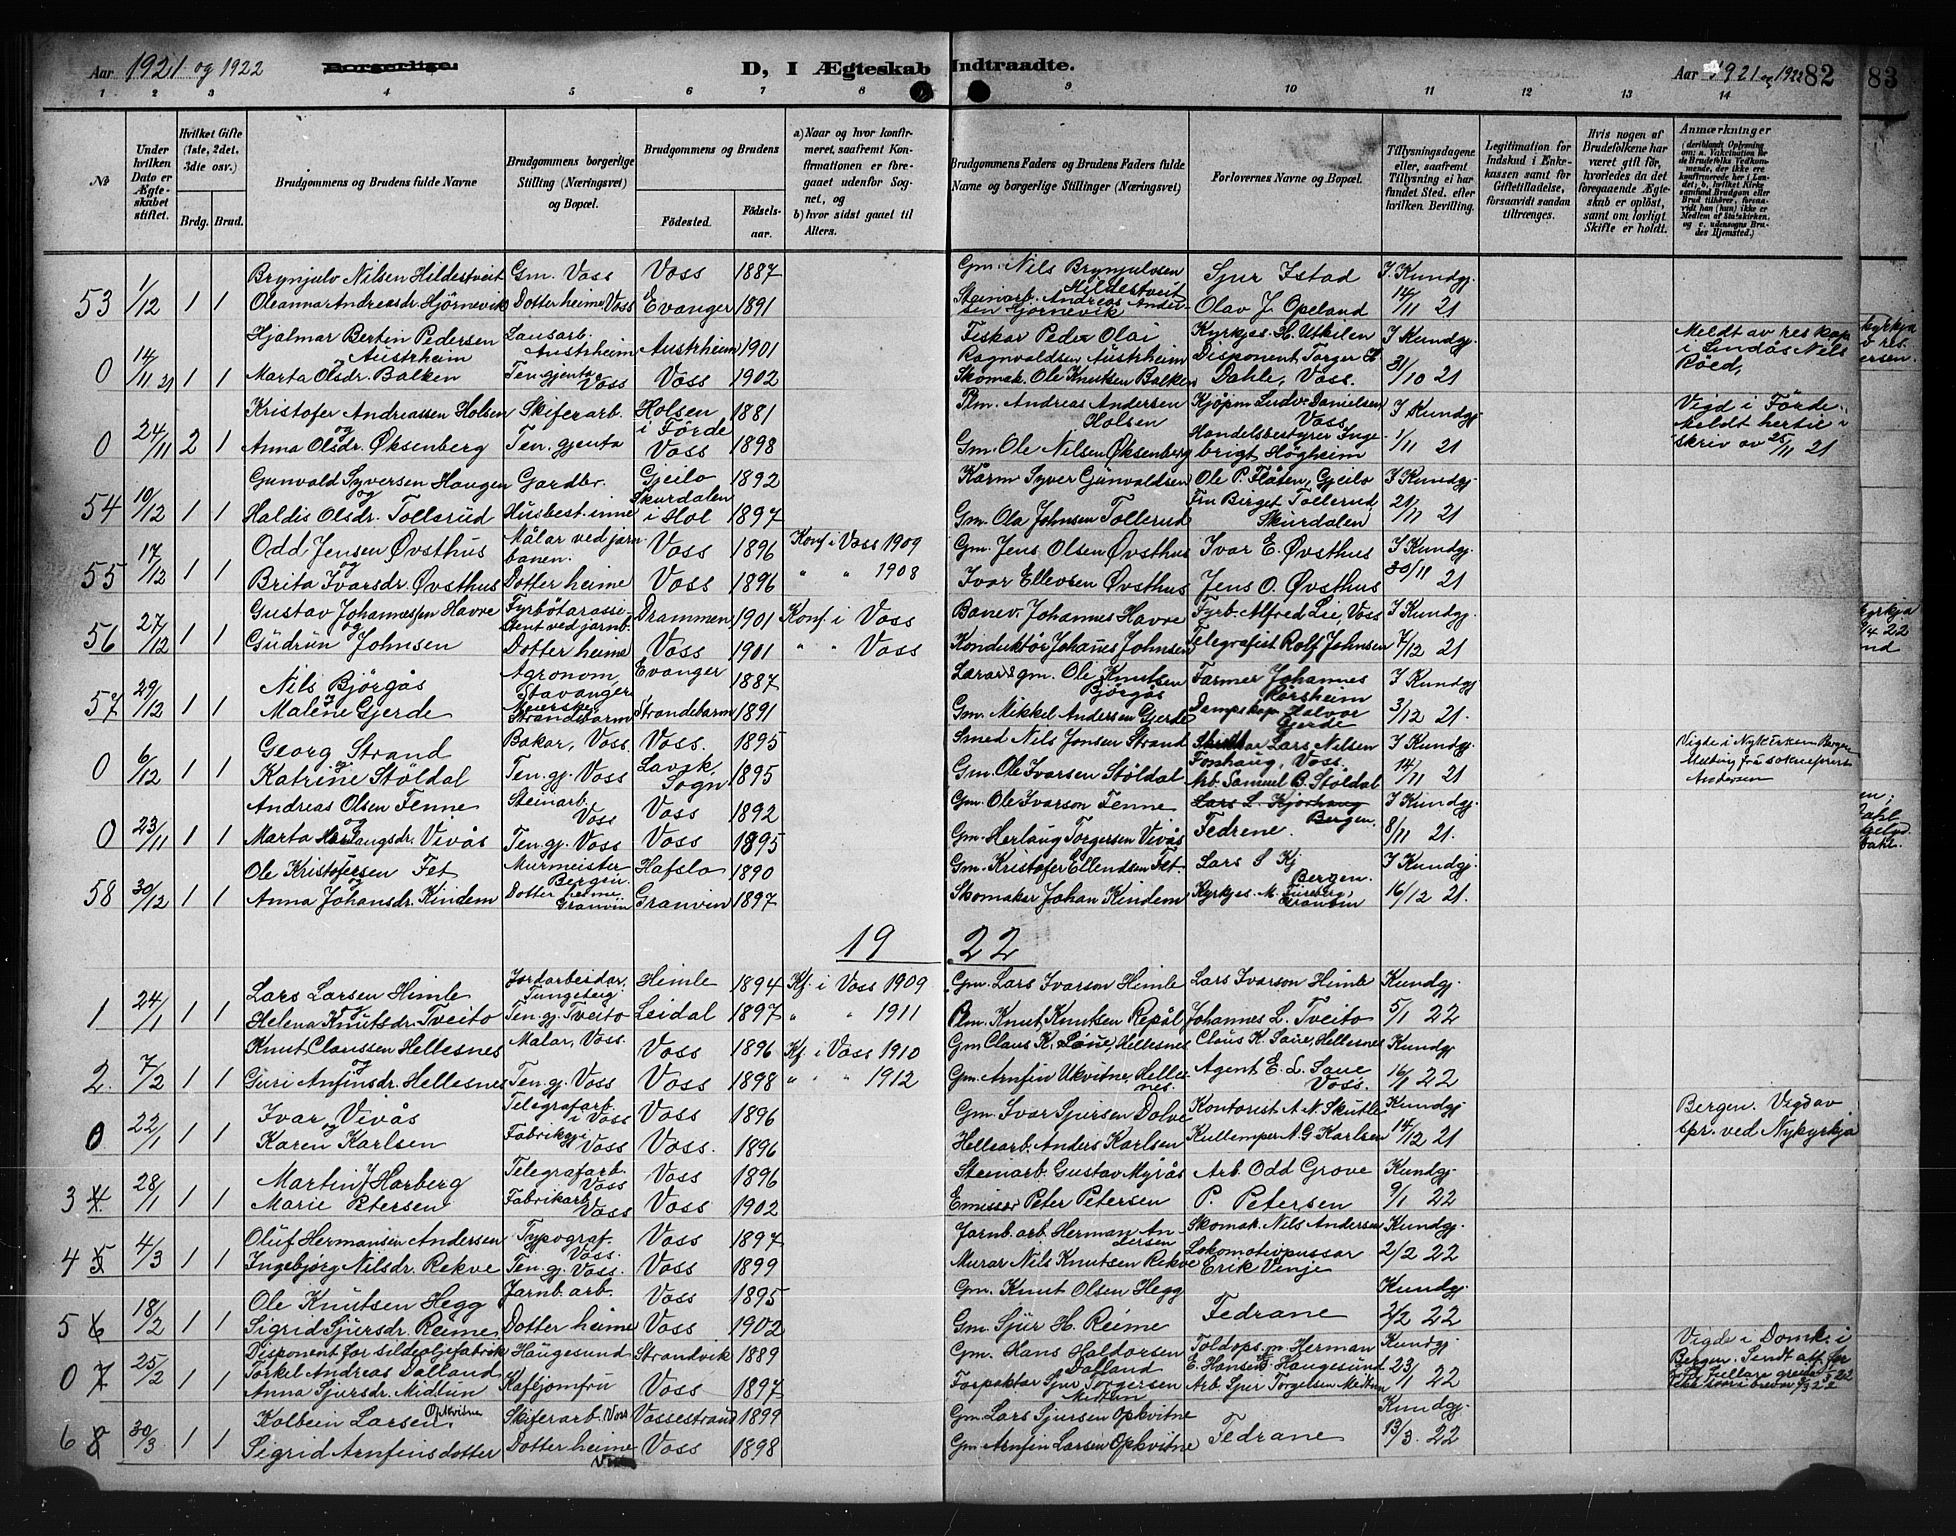 Aar 1921 og 1922 Borgerlige. D, I Ægteskab Indtraadte. Aar 1921 og 1922 82 83
1 2 3 4 5 6 7 8 9 10 11 12 13 14
No
Under hvilken Dato er Ægteskabet stiftet.
Hvilket Gifte (1ste, 2det, 3die osv.)
Brdg. Brud.
Brudgommens og Brudens fulde Navne
Brudgommens borgerlige Stilling (Næringsvei) og Bopæl.
Brudgommens og Brudens
Fødested. Fødselsaar.
a) Naar og hvor konfirmeret, saafremt Konfirmationen er foregaaet udenfor Sognet, og
b) hvor sidst gaaet til Alters.
Brudgommens Faders og Brudens Faders fulde Navne og borgerlige Stillinger (Næringsvei)
Forlovernes Navne og Bopæl.
Tillysningsdagene eller, saafremt Tillysning ei har fundet Sted, efter hvilken Bevilling.
Legitimation for Indskud i Enkekassen samt for Giftetilladelse, forsaavidt saadan tiltrænges.
Hvis nogen af Brudefolkene har været gift før, hvorledes da det foregaaende Ægteskab er opløst, samt om lovligt Skifte er holdt.
Anmærkninger
53 1/12 1 1 Brynjulv Nilsen Hildestveit Gm. Voss Voss 1887 Gm. Nils Brynjulvsen Hildestveit Sjur Istad I Kundgj.
Oleanna Andreasdr. Hjörnevik Dotter heime Voss Evanger 1891 Steinarb. Andreas Andersen Hjörnevik Olav J. Opeland 14/11 21
0 14/11 21 1 1 Hjalmar Bertin Pedersen Austrheim Lausarb. Austrheim Austrheim 1901 Fiskar Peder Olai Ragnvaldsen Austrheim Kyrkjes. H. Utkilen I Kundgj. Meldt av res. kap. i Lindås Nils Röed,
og Marta Olsdr. Balken Ten. gjenta Voss Voss 1902 Skomak. Ole Knutsen Balken Disponent Torger Dahle, Voss. 31/10 21
0 24/11 2 1 Kristofer Andreassen Holsen Skiferarb. Holsen i Förde 1881 Plm. Andreas Andersen Holsen Kjöpm Ludv. Danielsen Voss I Kundgj Vigd i Förde. Meldt hertil i skriv av 25/11 21
og Anna Olsdr. Øksenberg Ten. gjenta Voss 1898 Gm. Ole Nilsen Øksenberg Handelsbestyrer Ingebrigt Högheim 1/11 21
54 10/12 1 1 Gunvald Syversen Haugen Gardbr. Gjeilo 1892 Kårm Syver Gunvaldsen Ole P. Flåten, Gjeilo I Kundgj
og Haldis Olsdr. Tollerud Husbest.inne Skurdalen i Hol 1897 Gm. Ola Johnsen Tollerud Birget Tollerud Skurdalen 21/11 21
55 17/12 1 1 Odd Jensen Øvsthus Målar ved jarnbanen. Voss 1896 Konf. i Voss 1909 Gm. Jens Olsen Øvsthus Ivar E. Øvsthus I Kundgj.
og Brita Ivarsdr. Øvsthus Dotter heime Voss 1896 " " 1908 Ivar Ellevsen Øvsthus Jens O. Øvsthus 30/11 21
56 27/12 1 1 Gustav Johannessen Havre Fyrbötarassistent ved jarnb. Drammen 1901 Konf. i Voss Banev. Johannes Havre Fyrb. Alfred Lie, Voss I Kundgj.
og Gudrun Johnsen Dotter heime Voss 1901 " " Voss Konduktör Johanes Johnsen Telegrafist Rolf Johnsen 7/12 21
57 29/12 1 1 Nils Björgås Agronom, Stavanger Evanger 1887 Lærar & gm. Ole Knutsen Björgås Farmer Johannes Rörsheim I Kundgj
og Malene Gjerde Meierske Strandebarm Strandebarm 1891 Gm. Mikkel Andersen Gjerde Dampskap. Halvor Gjerde 3/12 21.
0 6/12 1 1 Georg Strand Bakar, Voss. Voss. 1895 Smed Nils Jonsen Strand Lars Nilsen Fonhaug, Voss. I Kundgj. Vigde i Nykirken Bergen Melding frå sokneprest Andersen
og Katrine Stöldal Ten. gj. Voss Lavik, Sogn 1895 Gm. Ole Ivarsen Stöldal Arb. Samuel B. Stöldal 14/11 21
0 23/11 1 1 Andreas Olsen Tenne Steinarb. Voss Voss 1892 Gm. Ole Ivarson Tenne Lars L. Kjorhaug Bergen. I Kundgj
og Marta Herlaugsdr. Vivås Ten. gj. Voss Voss 1895 Gm. Herlaug Torgersen Vivås Fedrene. 8/11 21.
58 30/12 1 1 Ole Kristofersen Fet Murmeister Bergen. Hafslo 1890 Gm. Kristofer Ellendsen Fet. Lars S Kj Bergen. I Kundgj.
og Anna Johansdr. Kindem Dotter heime Granvin Granvin 1897 Skomaker Johan Kindem Kyrkjes. M. Fureberg, Granvin 16/12 21.
19 22
1 24/1 1 1 Lars Larsen Himle Jordarbeidar, Himle 1894 Kf. i Voss 1909 Gm. Lars Ivarson Himle Lars Ivarson Himle Kundgj.
og Helena Knutsdr. Tveito Ten. gj. Tveito Leidal 1897 " " 1911 Plm. Knut Knutsen Repål Johannes L. Tveito 5/1 22
2. 7/2 1 1 Knut Claussen Hellesnes Malar, Voss. Voss 1896 Kf. i Voss 1910 Gm Claus K. Saue, Hellesnes Claus K. Saue, Hellesnes Kundgj
og Guri Anfinsdr. Hellesnes Ten. gj. Voss Voss 1898 " " 1912 Gm. Arnfin Ukvitne, Hellesnes. Agent E. L. Saue Voss. 16/1 22
0 22/1 1 1 Ivar Vivås Telegrafarb. i Voss Voss 1896 Gm. Ivar Sjursen Dolve Kontorist A. N. Skutle Kundgj Bergen. Vigd av spr. ved Nykyrkja
og Karen Karlsen Fabrikgj. i Voss Voss. 1896 Hellearb. Anders Karlsen Kullemper A. G. Karlsen 14/12 21
3 4 28/1 1 1 Martin J Harberg Telegrafarb. Voss Voss 1896 Steinarb. Gustav Myrås Arb. Odd Grove Kundgj.
Marie Petersen Fabrikarb. Voss Voss 1902 Emissær Peter Petersen P. Petersen 9/1 22
4 5 4/3 1 1 Oluf Hermansen Andersen Typograf. Voss. Voss 1897 Jarnb. arb. Herman Andersen Skomak. Nils Andersen Kundgj.
Ingebjørg Nilsdr. Rekve Ten. gj. Voss. Voss 1899 Murar Nils Knutsen Rekve Lokomotivpussar Erik Vinje 2/2 22
5 6 18/2 1 1 Ole Knutsen Hegg Jarnb. arb. Voss 1895 Gm. Knut Olsen Hegg Fedrane Kundgj.
Sigrid Sjursdr. Reime Dotter heime Voss 1902 Gm. Sjur H. Reime 2/2 22
0 7 25/2 1 1 Disponent for sildoljefabrik Torkel Andreas Dalland Haugesund Strandvik 1889 Gm. Hans Haldorsen Dalland Toldops. m. Herman E. Hansen Haugesund Kundgj Vigde i Domk. i Bergen. Sendt att for
Anna Sjursdr. Midtun Kafejomfru Voss 1897 Forpaktar Sjur Torgersen Midtun Arb. Sjur Torgersen Midtun 23/1 22
6 8 30/3 1 1 Kolbein Larsen Opkvitne Skiferarb. Voss Vossestrand 1899 Gm. Lars Sjursen Opkvitne Fedrane Kundgj.
Sigrid Arnfinsdotter Dotter heime Voss Voss 1898 Gm. Arnfin Larsen Opkvitne 13/3. 22